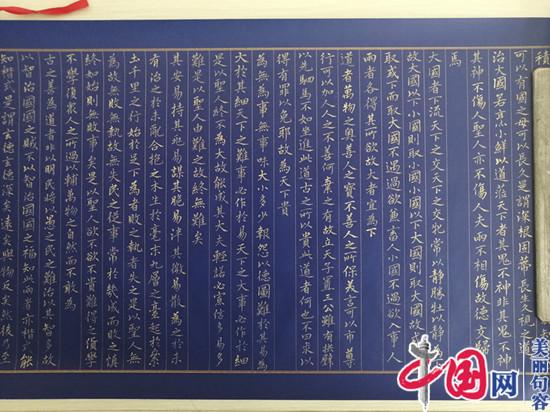 積
可以有國有國之母可以長久是謂深根固蒂長生久視之道
治大國若烹小鮮以道莅天下者其鬼不神非其鬼不神
其神不傷人聖人亦不傷人夫兩不相傷故德交歸
焉
大國者下流天下之交天下之牝常以靜勝牡以靜
故大國以下小國則取小國小國以下大國則取大國故或
取或下而取大國不過欲兼畜人小國不過欲入事人
兩者各得其所欲故大者宜為下
道者萬物之奧善人之寶不善人之所保美言可以市尊
行可以加人人之不善何棄之有故立天子置三公雖有拱璧
以先駟馬不如坐進此道古之所以貴此道者何也不曰求以
得有罪以免耶故為天下貴
為無為事無事味大小多少報怨以德圖難於其易為
大於其細天下之難事必作於易天下之大事必作於細
是以聖人終不為大故能成其大夫輕諾必寡信多易多
難是以聖人由難之故終無難矣
其安易持其未兆易謀其脆易泮其微易散為之於未
有治之於未亂合抱之木生於毫末九層之臺起於累
土千里之行始於足下為者敗之執者失之是以聖人無
為故無敗無執故無失民之從事常於幾成而敗之慎
終如始則無敗事矣是以聖人欲不欲不貴難得之貨學
不學復衆人之所過以輔萬物之自然而不敢為
古之善為道者非以明民將以愚之民之難治以其智多故
以智治國國之賊不以智治國國之福知此兩者亦楷式能
知楷式是謂玄德玄德深矣遠矣與物反矣然後乃至
中国网
美丽句容